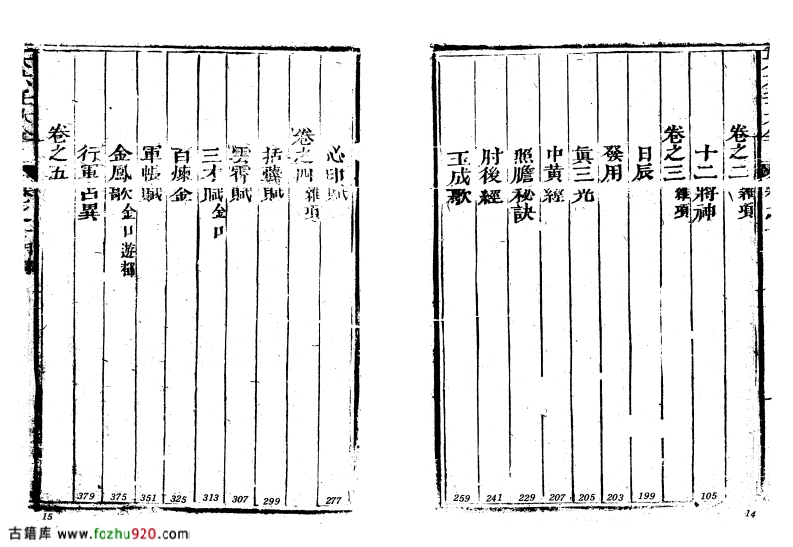 卷之二 雜項
十二將神 105
卷之三 雜項
日辰 199
發用 203
眞三光 205
中黃經 207
照膽秘訣 229
肘後經 241
玉成歌 259
14
心印賦 277
卷之四 雜項
括囊賦 299
雲霄賦 307
三才賦 金口 313
百煉金 325
軍帳賦 351
金鳳歌 金口遊都 375
行軍占異 379
卷之五
15
古籍库 www.fozhu920.com